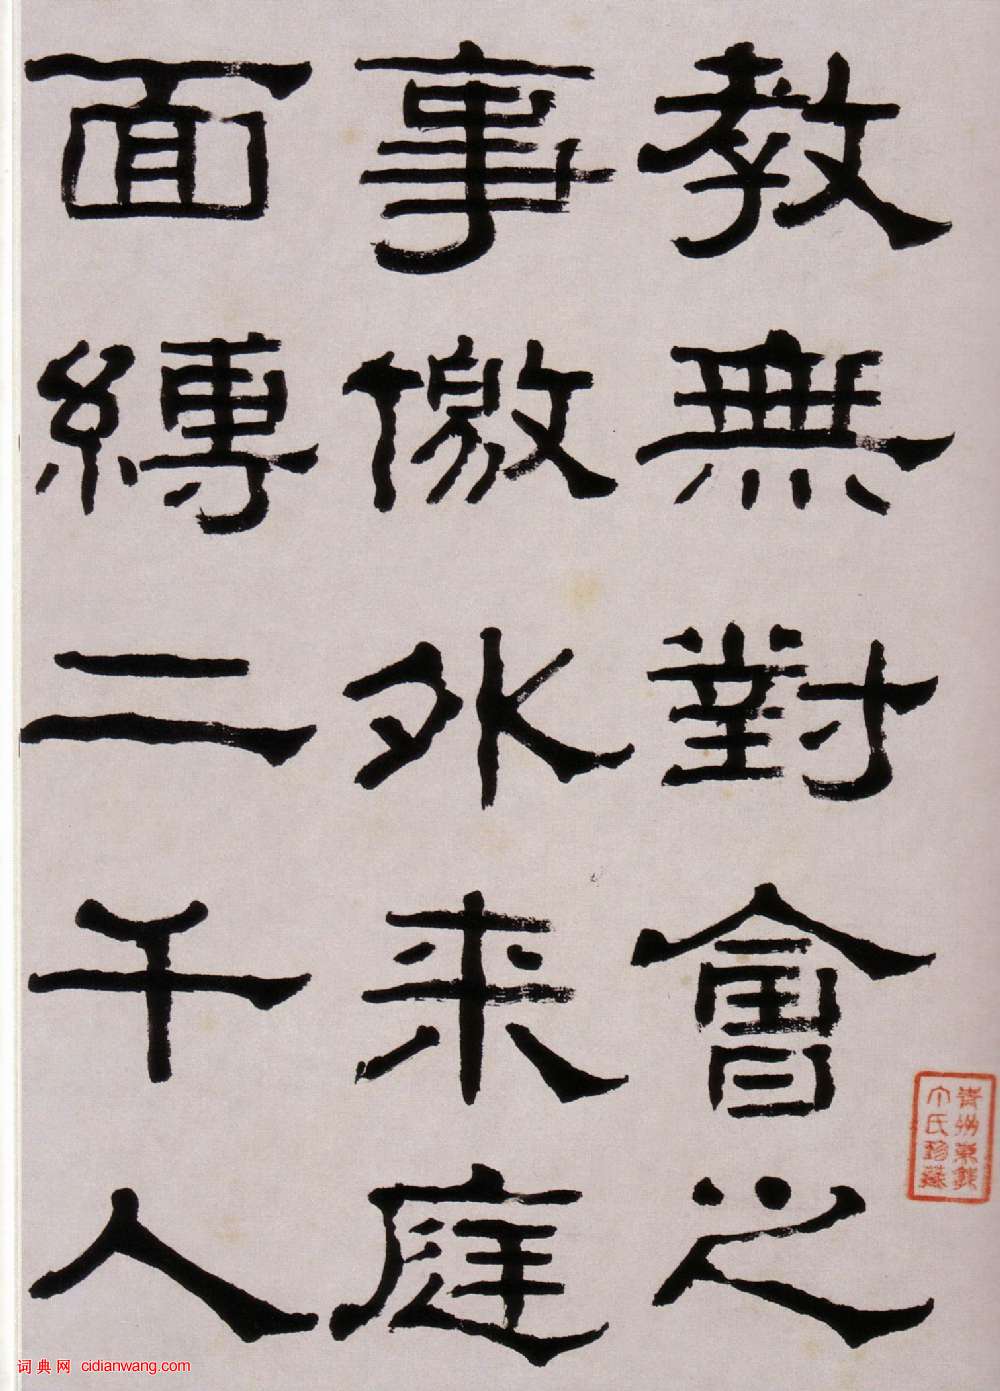 教無對會之
事徼外来庭
面縛二千人
词典网 cidianwang.com